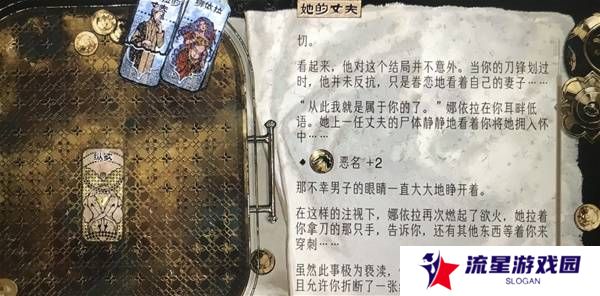 她的丈夫
娜依拉
纵欲
切。
看起来，他对这个结局并不意外。当你的刀锋划过
时，他并未反抗，只是眷恋地看着自己的妻子……
“从此我就是属于你的了。”娜依拉在你耳畔低
语。她上一任丈夫的尸体静静地看着你将她拥入怀
中……
恶名 +2
那不幸男子的眼睛一直大大地睁开着。
在这样的注视下，娜依拉再次燃起了欲火，她拉着
你拿刀的那只手，告诉你，还有其他东西等着你来
穿刺……
虽然此事极为亵渎，
且允许你折断了一张
流星游戏园
SLOGAN